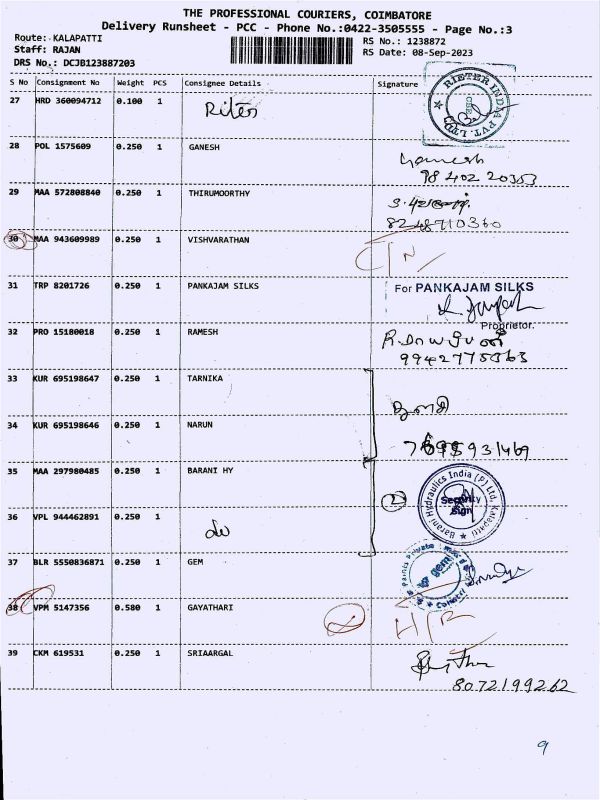 THE PROFESSIONAL COURIERS, COIMBATORE
Delivery Runsheet - PCC - Phone No.:0422-3505555 - Page No.:3
Route: KALAPATTI
RS No.: 1238872
Staff: RAJAN
RS Date: 08-Sep-2023
DRS No.: DCJB123887203
S No Consignment No Weight PCS Consignee Details Signature
27 HRD 360094712 0.100 1 Riter
RIETER INDIA PVT. LTD.
28 POL 1575609 0.250 1 GANESH
Ganesh
98402 20353
29 MAA 572808840 0.250 1 THIRUMOORTHY
8248710360
30 MAA 943609989 0.250 1 VISHVARATHAN
31 TRP 8201726 0.250 1 PANKAJAM SILKS
For PANKAJAM SILKS
Proprietor.
32 PRO 15180018 0.250 1 RAMESH
9942775363
33 KUR 695198647 0.250 1 TARNIKA
34 KUR 695198646 0.250 1 NARUN
7695931469
35 MAA 297980485 0.250 1 BARANI HY
Barani Hydraulics India (P) Ltd, Kalapatti
Security
Sign
2
36 VPL 944462891 0.250 1
37 BLR 5550836871 0.250 1 GEM
gem
38 VPM 5147356 0.580 1 GAYATHARI
39 CKM 619531 0.250 1 SRIAARGAL
8072199262
9